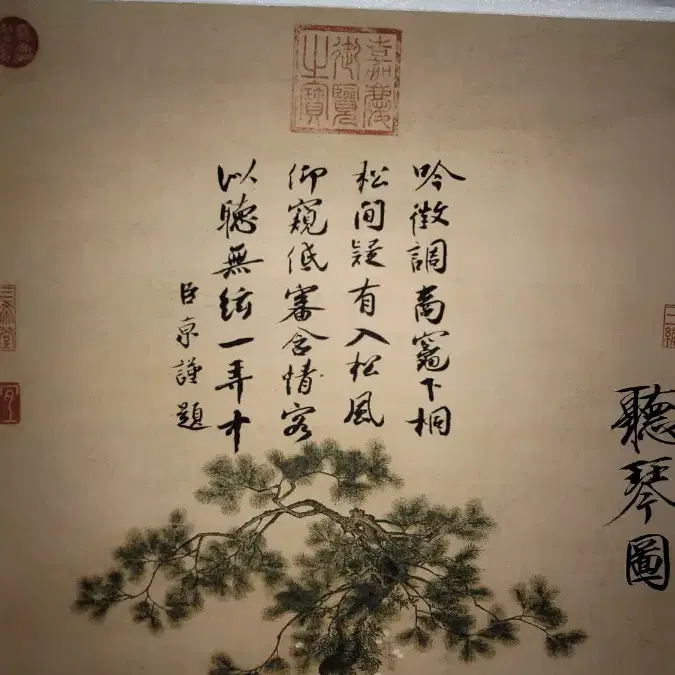 聽琴圖
嘉慶御覽之寶
吟徵調商竈下桐
松間疑有入松風
仰窺低審含情客
以聽無絃一弄中
臣京謹題